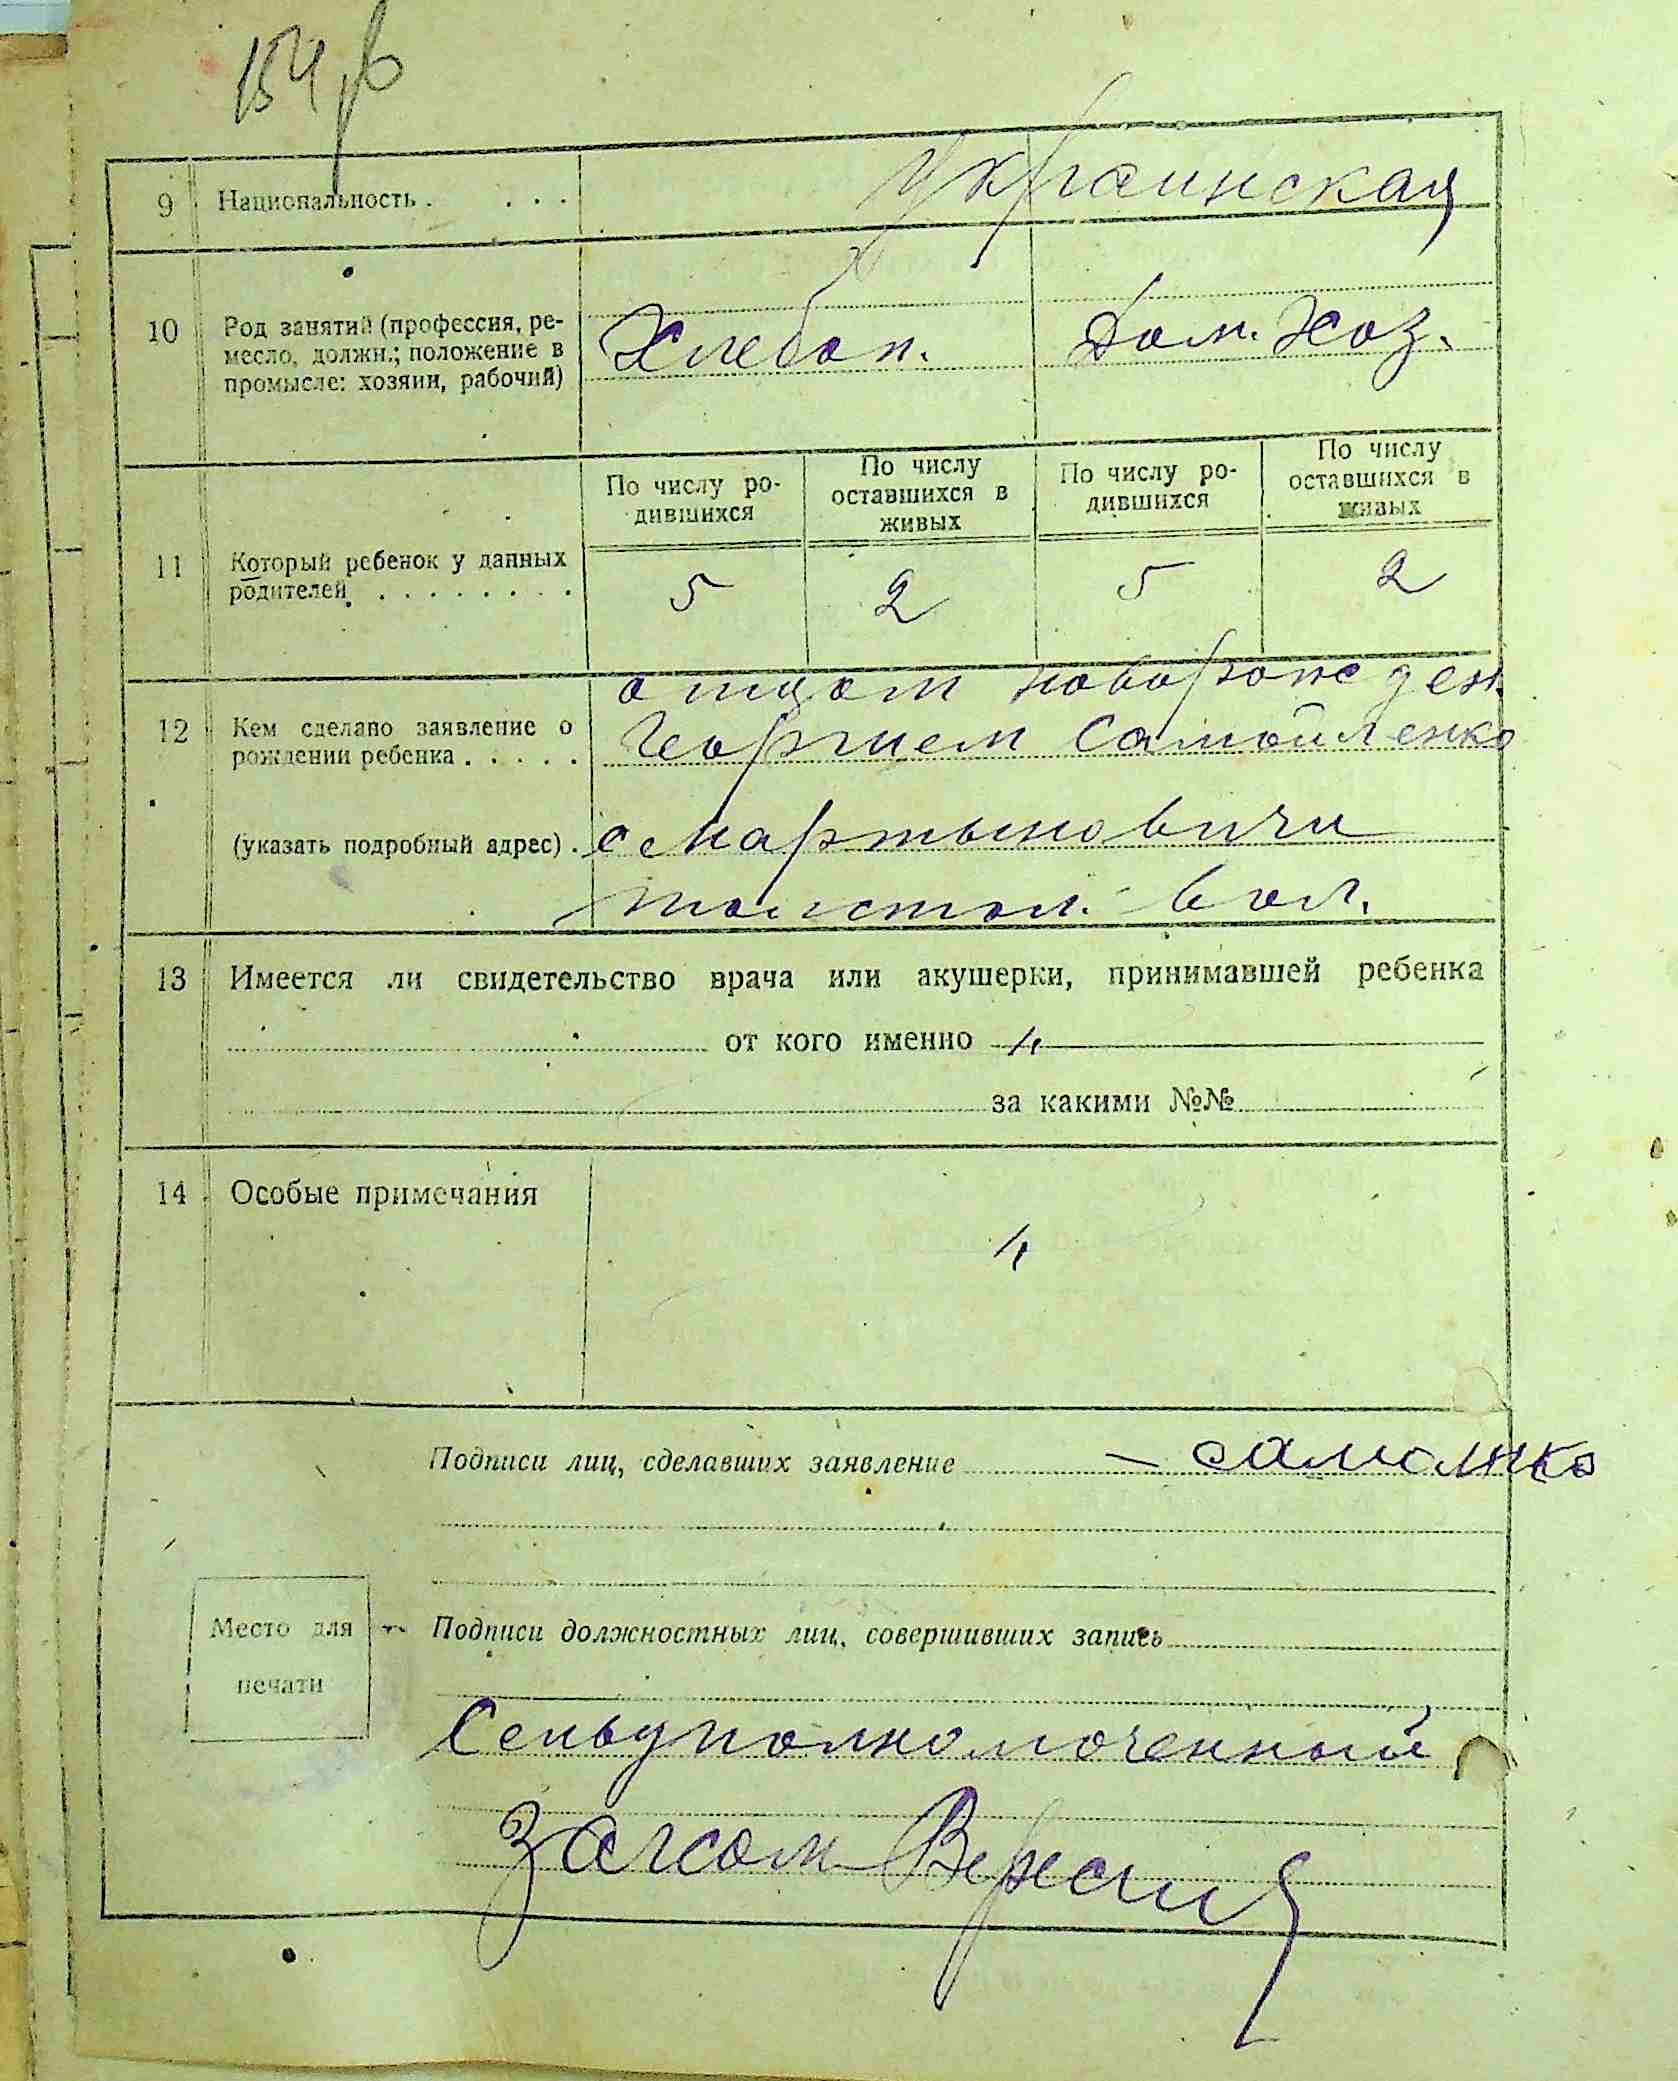 154 об
9 Национальность . . . . Украинская
10 Род занятий (профессия, ре-
месло, должн.; положение в
промысле: хозяин, рабочий)
Хлебоп. Дом. Хоз.
По числу ро-
дившихся
По числу
оставшихся в
живых
По числу ро-
дившихся
По числу
оставшихся в
живых
11 Который ребенок у данных
родителей . . . . . . . . .
5 2 5 2
12 Кем сделано заявление о
рождении ребенка . . . . .
(указать подробный адрес) .
отцом новорожден
Георгием Самойленко
с Мартыновичи
толстол. вол.
13 Имеется ли свидетельство врача или акушерки, принимавшей ребенка
от кого именно
за какими №№
14 Особые примечания
Подписи лиц, сделавших заявление
Место для
печати
Подписи должностных лиц, совершивших запись
Сельуполномоченный
Загсом